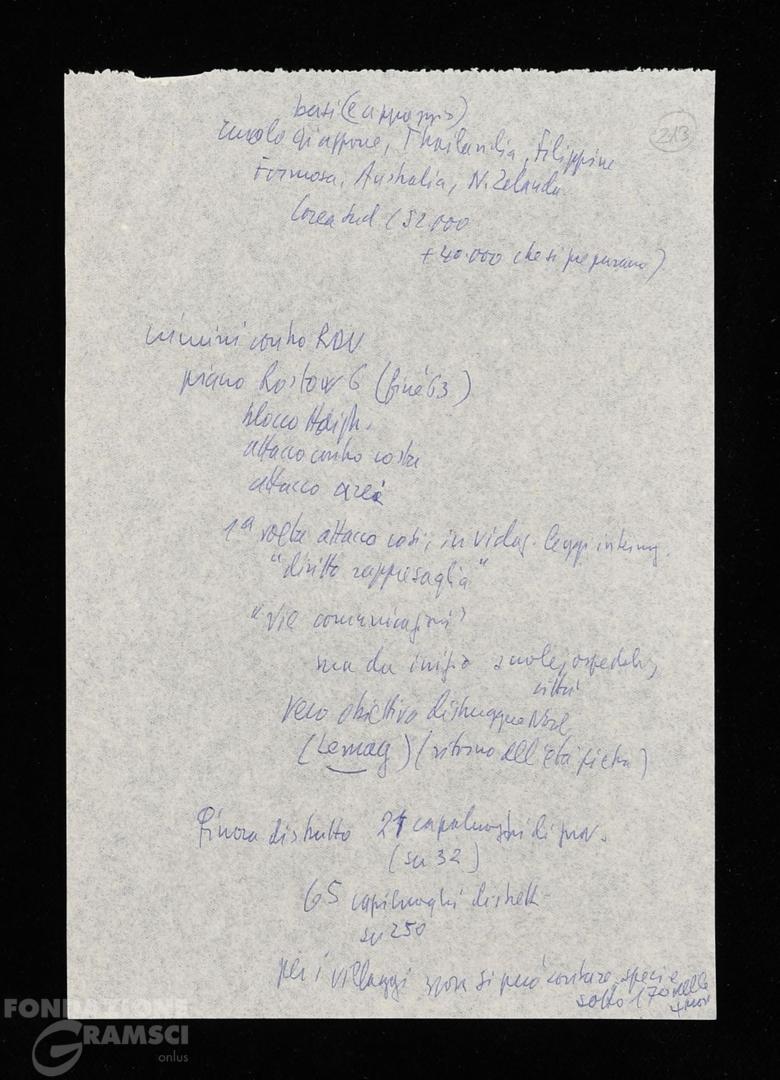 basi (e appoggio)
ruolo Giappone, Thailandia, Filippine
213
Formosa, Australia, N. Zelanda
Corea Sud (52.000
+ 40.000 che si preparano)
crimini contro RDV
piano Rostow 6 (fine 63)
blocco Haiph.
attacco contro costa
attacco aereo
1ª volta attacco così, in violaz. leggi internaz.
"diritto rappresaglia"
"vie comunicazioni"
ma da inizio scuole, ospedali,
città
vero obiettivo distruggere Nord
(Lemay) (ritorno all'età pietra)
Finora distrutto 21 capoluoghi di prov.
(su 32)
65 capiluoghi distrett.
su 250
per i villaggi non si può contare, specie
sotto 17º
FONDAZIONE
GRAMSCI
onlus